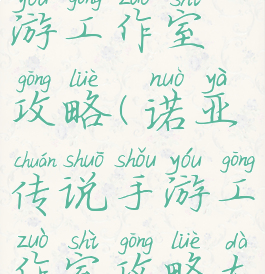 yóu gōng zuò shì
游工作室
gōng lüè nuò yà
攻略(诺亚
chuán shuō shǒu yóu gōng
传说手游工
zuò shì gōng lüè dà
作室攻略大